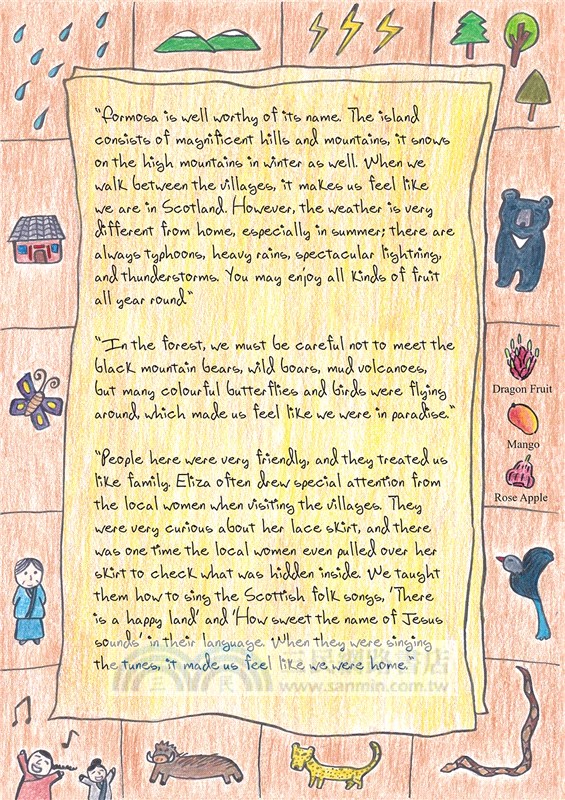 "Formosa is well worthy of its name. The island
consists of magnificent hills and mountains, it snows
on the high mountains in winter as well. When we
walk between the villages, it makes us feel like
we are in Scotland. However, the weather is very
different from home, especially in summer; there are
always typhoons, heavy rains, spectacular lightning,
and thunderstorms. You may enjoy all kinds of fruit
all year round"
"In the forest, we must be careful not to meet the
black mountain bears, wild boars, mud volcanoes,
but many colourful butterflies and birds were flying
around, which made us feel like we were in paradise."
"People here were very friendly, and they treated us
like family. Eliza often drew special attention from
the local women when visiting the villages. They
were very curious about her lace skirt, and there
was one time the local women even pulled over her
skirt to check what was hidden inside. We taught
them how to sing the Scottish folk songs, 'There
is a happy land' and 'How sweet the name of Jesus
sounds' in their language. When they were singing
the tunes, it made us feel like we were home."
Dragon Fruit
Mango
Rose Apple
三民
www.sanmin.com.tw